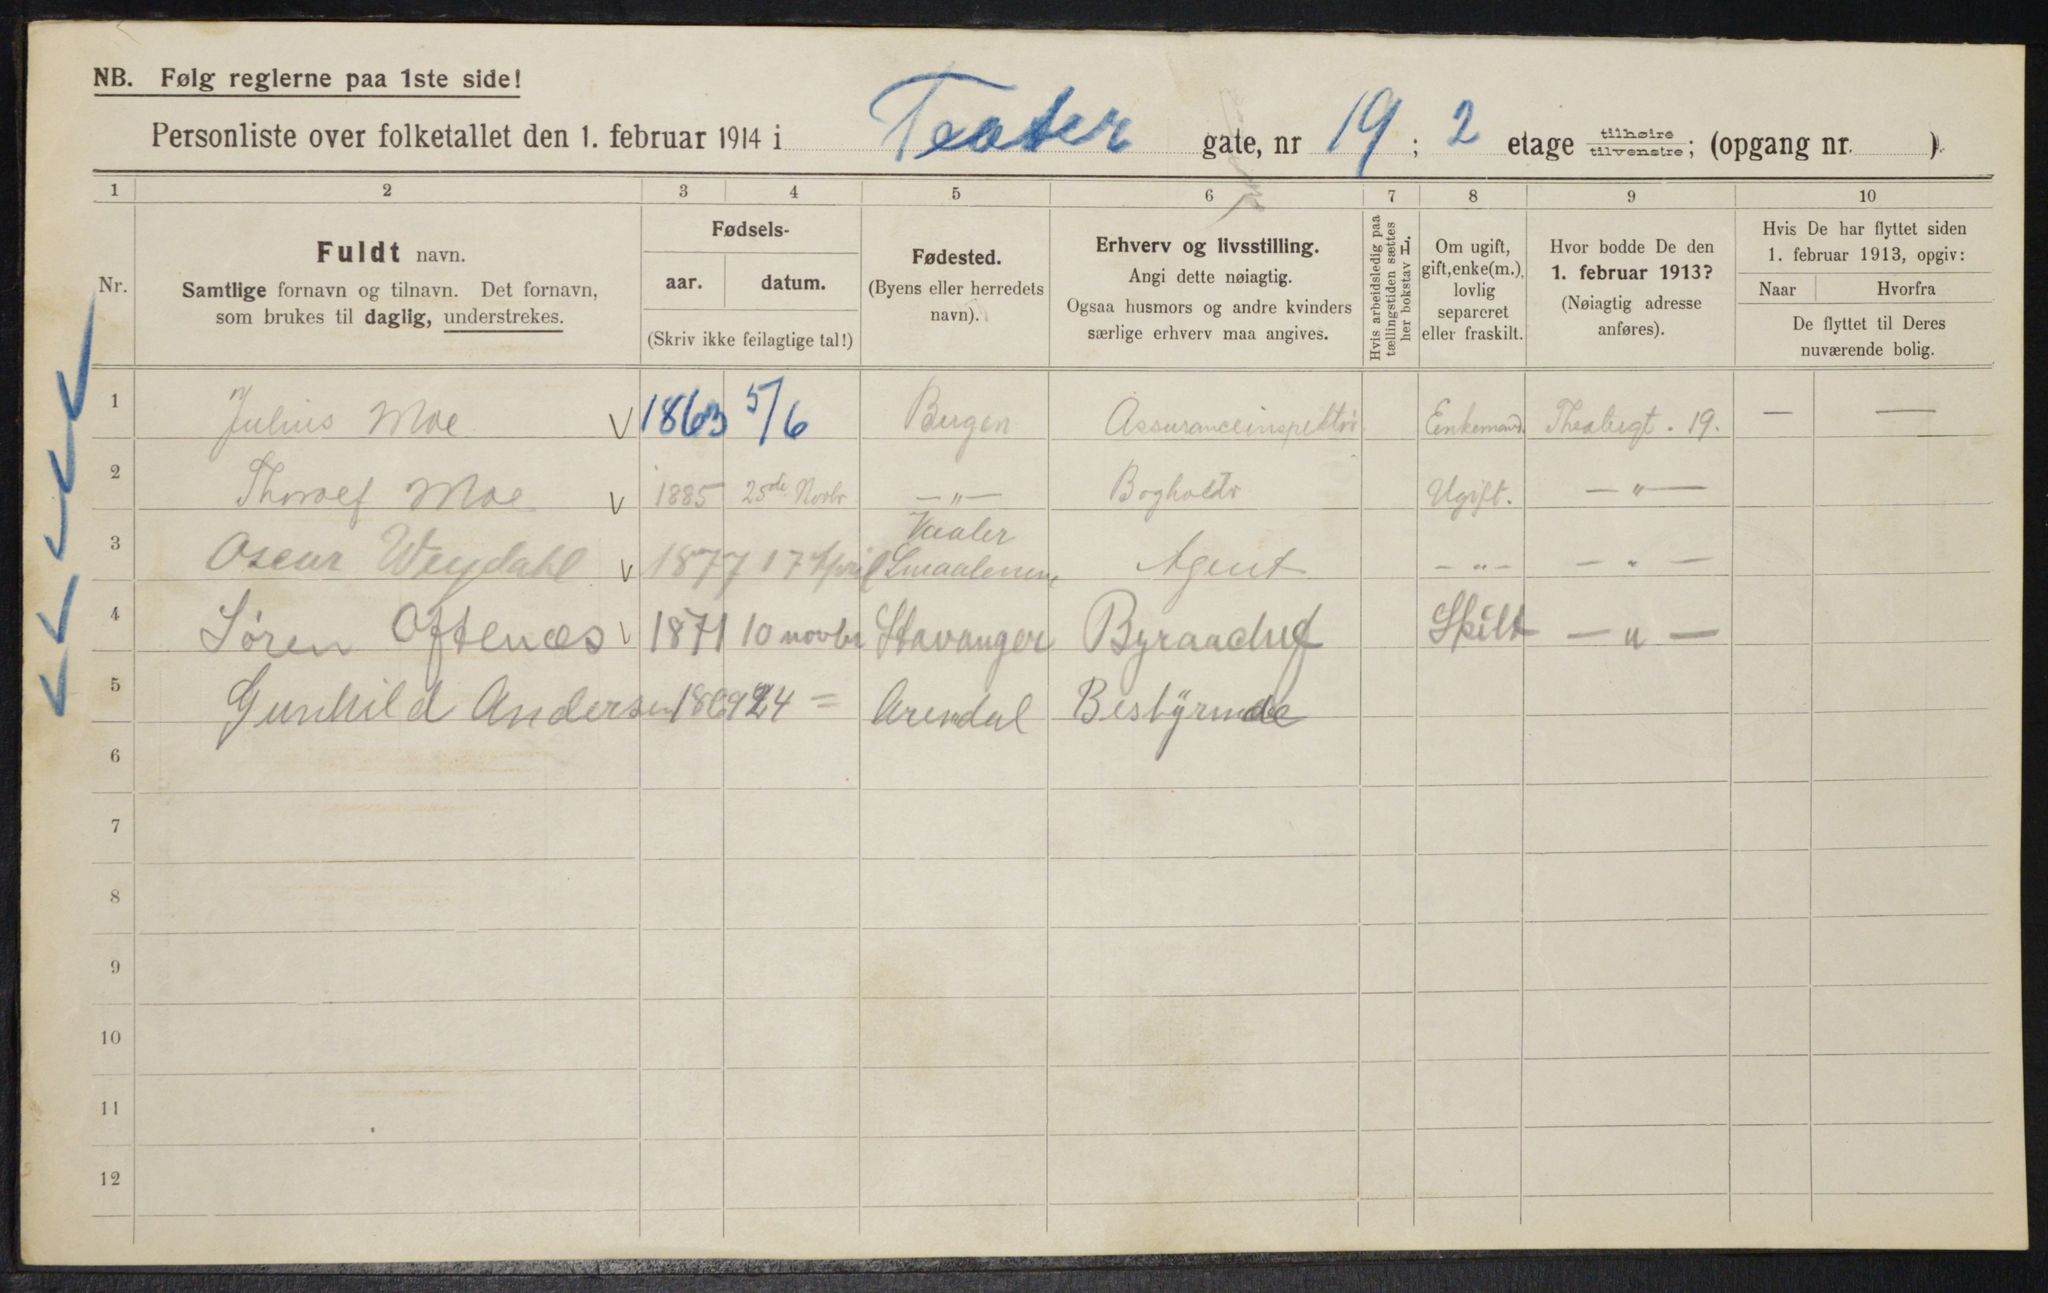 NB. Følg reglerne paa 1ste side!
Personliste over folketallet den 1. februar 1914 i Teater gate, nr 19; 2 etage tilhøire tilvenstre; (opgang nr. ).
1 2 3 4 5 6 7 8 9 10
Nr.
Fuldt navn.
Samtlige fornavn og tilnavn. Det fornavn,
som brukes til daglig, understrekes.
Fødsels-
aar. datum.
(Skriv ikke feilagtige tal!)
Fødested.
(Byens eller herredets
navn).
Erhverv og livsstilling.
Angi dette nøiagtig.
Ogsaa husmors og andre kvinders
særlige erhverv maa angives.
Hvis arbeidsledig paa
tællingstiden sættes
her bokstav L.
Om ugift,
gift, enke(m.),
lovlig
separeret
eller fraskilt.
Hvor bodde De den
1. februar 1913?
(Nøiagtig adresse
anføres).
Hvis De har flyttet siden
1. februar 1913, opgiv:
Naar Hvorfra
De flyttet til Deres
nuværende bolig.
1 Julius Moe 1863 5/6 Bergen Assuranceinspektør Enkemand. Theatergt. 19. — —
2 Thoralf Moe 1885 25de Novbr — " — Bogholdr Ugift. — " —
3 Oscar Weydahl 1877 17 April Vaaler Smaalenene Agent — " — — " —
4 Søren Oftenæs 1871 10 novbr Stavanger Byraachef Skilt — " —
5 Gunhild Andersen 1869 24 = Arendal Bestyrinde
6
7
8
9
10
11
12